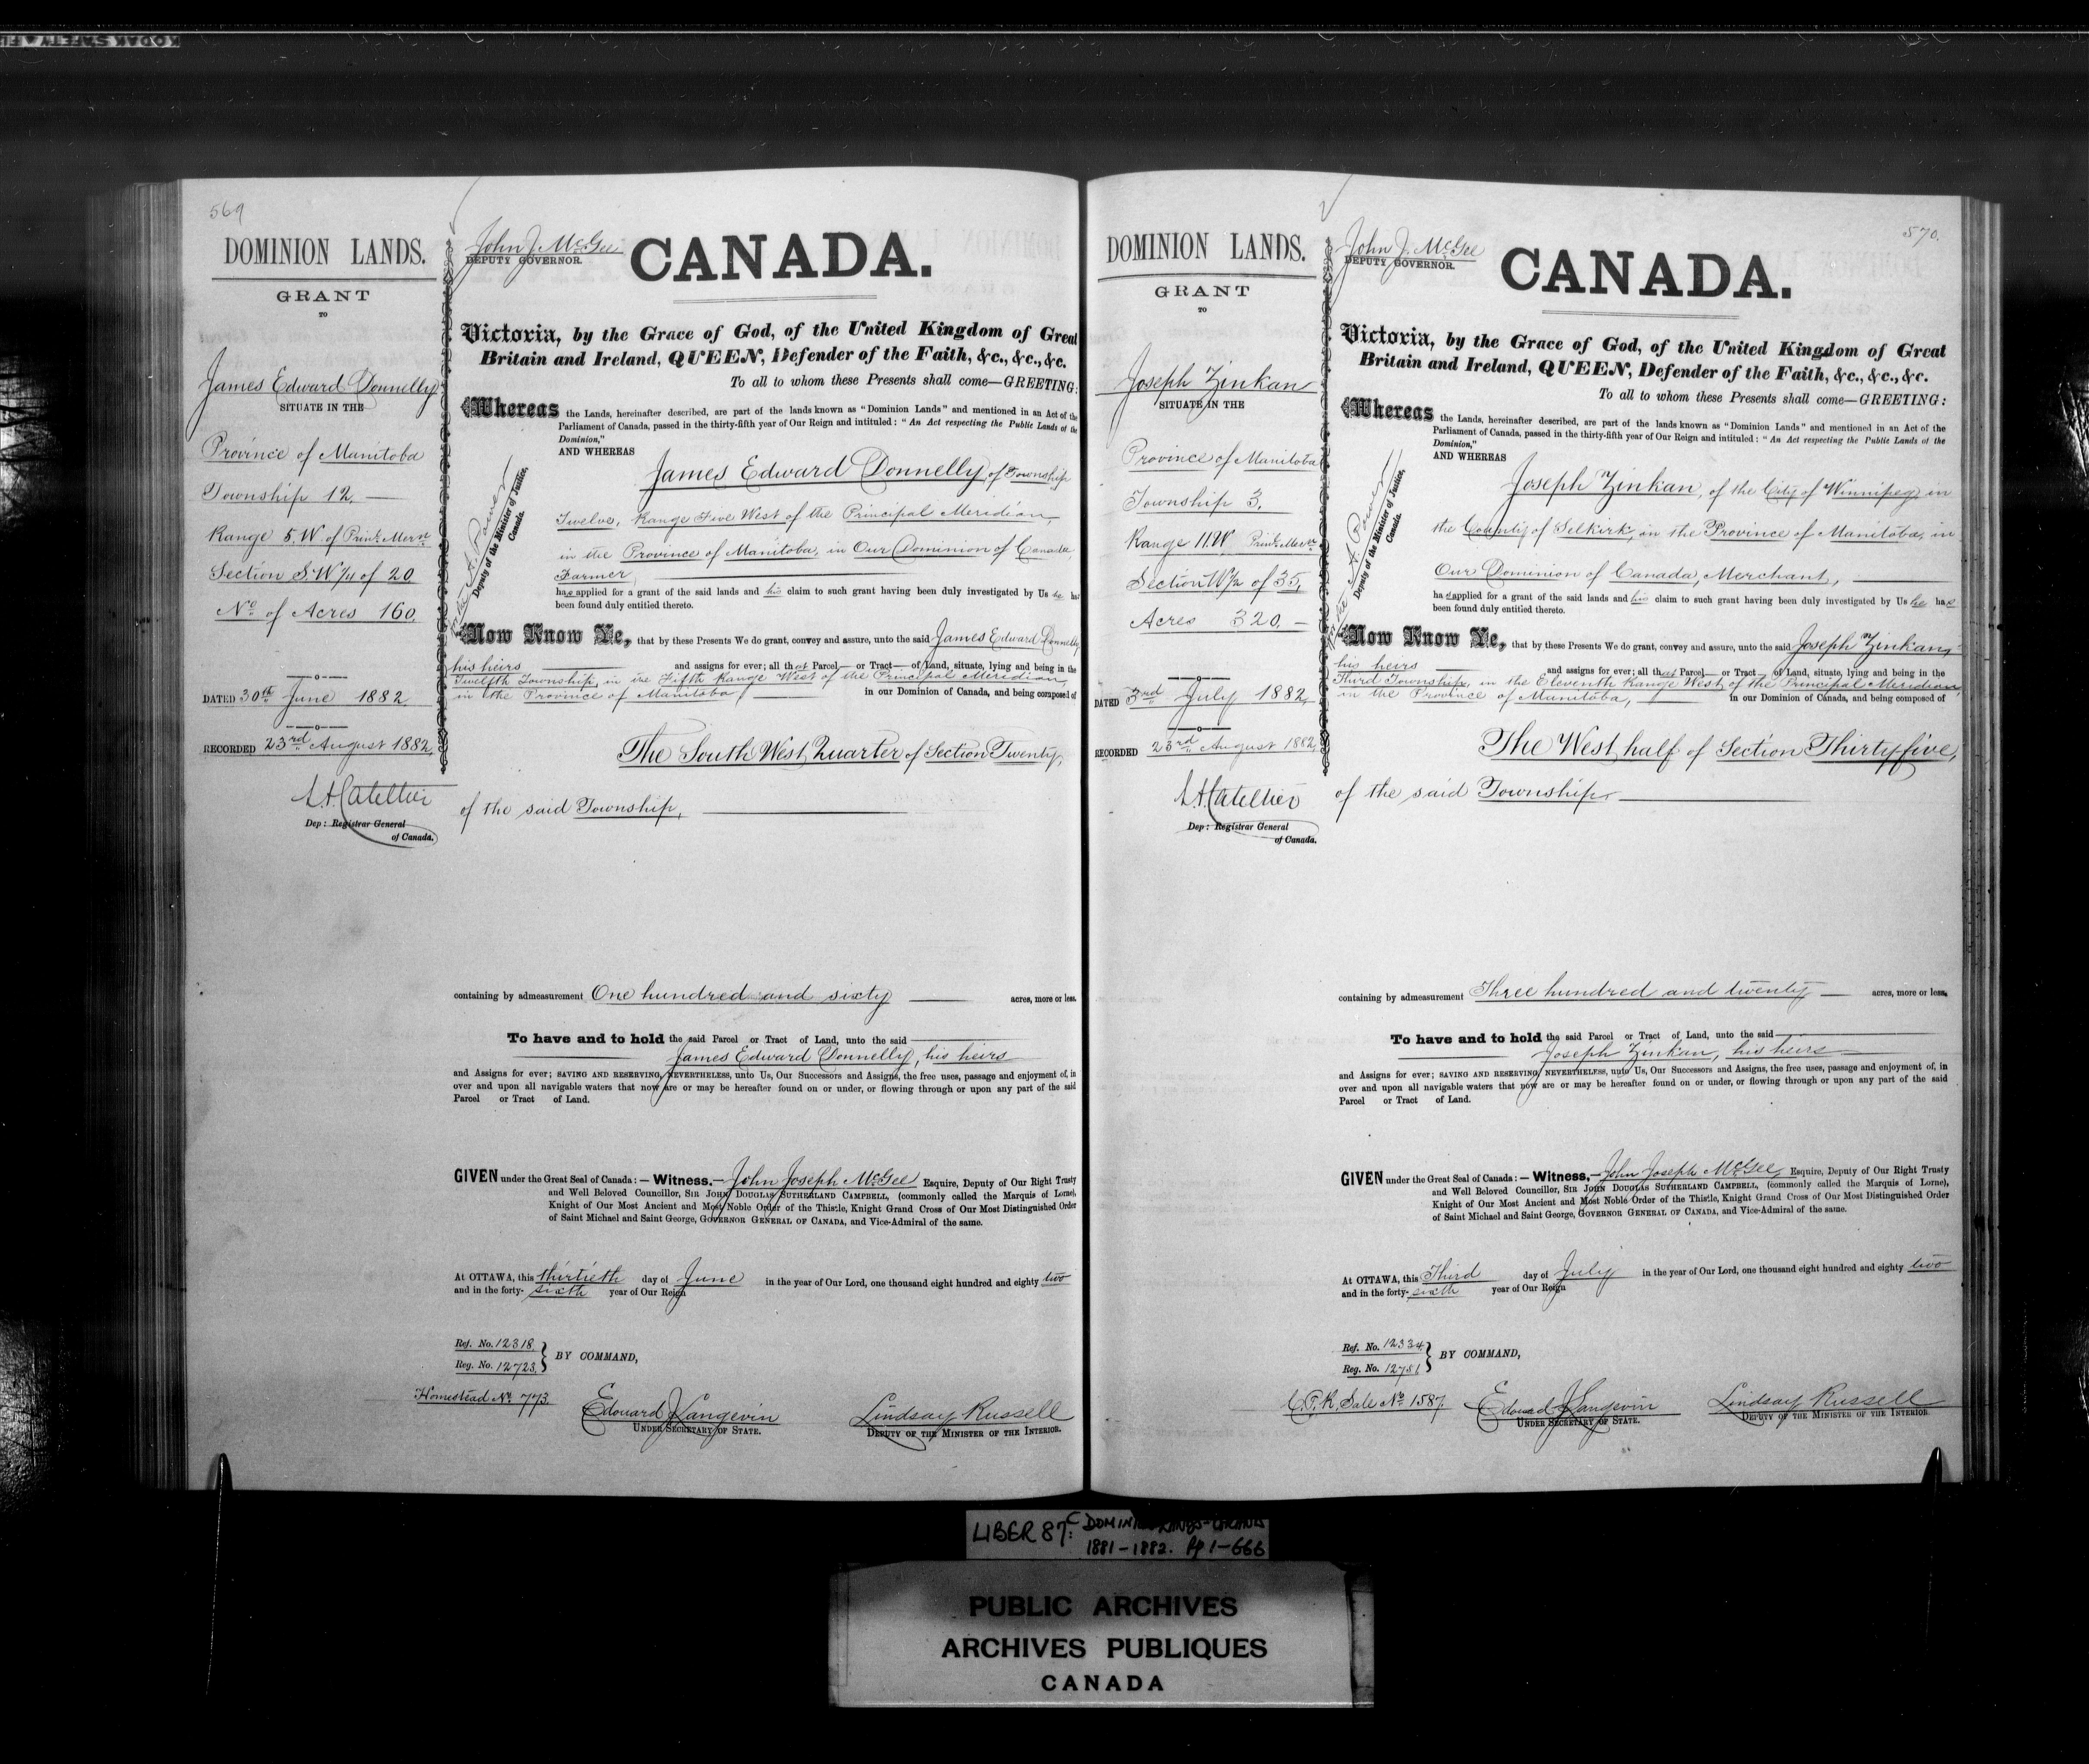 569
DOMINION LANDS.
GRANT
TO
James Edward Donnelly
SITUATE IN THE
Province of Manitoba
Township 12.
Range 5. W. of Prin: Mern
Section S. W 1/4 of 20
No of Acres 160.
DATED 30th June 1882
RECORDED 23rd August 1882
Dep: Registrar General
of Canada.
John J. McGee
DEPUTY GOVERNOR.
CANADA.
Victoria, by the Grace of God, of the United Kingdom of Great
Britain and Ireland, QUEEN, Defender of the Faith, &c., &c., &c.
To all to whom these Presents shall come—GREETING:
Whereas the Lands, hereinafter described, are part of the lands known as "Dominion Lands" and mentioned in an Act of the
Parliament of Canada, passed in the thirty-fifth year of Our Reign and intituled: "An Act respecting the Public Lands of the
Dominion,"
AND WHEREAS
James Edward Donnelly, of Township
Twelve, Range Five West of the Principal Meridian,
in the Province of Manitoba, in Our Dominion of Canada,
Farmer,
has applied for a grant of the said lands and his claim to such grant having been duly investigated by Us he has
been found duly entitled thereto.
A. Power
Deputy of the Minister of Justice,
Canada.
Now Know Ye, that by these Presents We do grant, convey and assure, unto the said James Edward Donnelly
his heirs and assigns for ever; all that Parcel or Tract of Land, situate, lying and being in the
Twelfth Township, in the Fifth Range West of the Principal Meridian,
in the Province of Manitoba, in our Dominion of Canada, and being composed of
The South West Quarter of Section Twenty,
of the said Township,
containing by admeasurement One hundred and sixty acres, more or less.
To have and to hold the said Parcel or Tract of Land, unto the said
James Edward Donnelly, his heirs
and Assigns for ever; SAVING AND RESERVING, NEVERTHELESS, unto Us, Our Successors and Assigns, the free uses, passage and enjoyment of, in
over and upon all navigable waters that now are or may be hereafter found on or under, or flowing through or upon any part of the said
Parcel or Tract of Land.
GIVEN under the Great Seal of Canada:—Witness.—John Joseph McGee Esquire, Deputy of Our Right Trusty
and Well Beloved Councillor, SIR JOHN DOUGLAS SUTHERLAND CAMPBELL, (commonly called the Marquis of Lorne),
Knight of Our Most Ancient and Most Noble Order of the Thistle, Knight Grand Cross of Our Most Distinguished Order
of Saint Michael and Saint George, GOVERNOR GENERAL OF CANADA, and Vice-Admiral of the same.
At OTTAWA, this thirtieth day of June in the year of Our Lord, one thousand eight hundred and eighty two
and in the forty- sixth year of Our Reign
Ref. No. 12318.
Reg. No. 12723.
BY COMMAND,
Homestead No. 773.
Edouard J. Langevin
UNDER SECRETARY OF STATE.
Lindsay Russell
DEPUTY OF THE MINISTER OF THE INTERIOR.
570.
DOMINION LANDS.
GRANT
TO
Joseph Zinkan
SITUATE IN THE
Province of Manitoba
Township 3.
Range 11.W. Prin: Mer
Section W 1/2 of 35,
Acres 320.
DATED 3rd July 1882
RECORDED 23rd August 1882,
Dep: Registrar General
of Canada.
John J. McGee
DEPUTY GOVERNOR.
CANADA.
Victoria, by the Grace of God, of the United Kingdom of Great
Britain and Ireland, QUEEN, Defender of the Faith, &c., &c., &c.
To all to whom these Presents shall come—GREETING:
Whereas the Lands, hereinafter described, are part of the lands known as "Dominion Lands" and mentioned in an Act of the
Parliament of Canada, passed in the thirty-fifth year of Our Reign and intituled: "An Act respecting the Public Lands of the
Dominion,"
AND WHEREAS
Joseph Zinkan, of the City of Winnipeg in
the County of Selkirk, in the Province of Manitoba, in
Our Dominion of Canada, Merchant,
has applied for a grant of the said lands and his claim to such grant having been duly investigated by Us he has
been found duly entitled thereto.
A. Power
Deputy of the Minister of Justice,
Canada.
Now Know Ye, that by these Presents We do grant, convey and assure, unto the said Joseph Zinkan,
his heirs and assigns for ever; all that Parcel or Tract of Land, situate, lying and being in the
Third Township, in the Eleventh Range West of the Principal Meridian,
in the Province of Manitoba, in our Dominion of Canada, and being composed of
The West half of Section Thirty-five,
of the said Township.
containing by admeasurement Three hundred and twenty acres, more or less.
To have and to hold the said Parcel or Tract of Land, unto the said
Joseph Zinkan, his heirs
and Assigns for ever; SAVING AND RESERVING, NEVERTHELESS, unto Us, Our Successors and Assigns, the free uses, passage and enjoyment of, in
over and upon all navigable waters that now are or may be hereafter found on or under, or flowing through or upon any part of the said
Parcel or Tract of Land.
GIVEN under the Great Seal of Canada:—Witness,—John Joseph McGee, Esquire, Deputy of Our Right Trusty
and Well Beloved Councillor, SIR JOHN DOUGLAS SUTHERLAND CAMPBELL, (commonly called the Marquis of Lorne),
Knight of Our Most Ancient and Most Noble Order of the Thistle, Knight Grand Cross of Our Most Distinguished Order
of Saint Michael and Saint George, GOVERNOR GENERAL OF CANADA, and Vice-Admiral of the same.
At OTTAWA, this Third day of July in the year of Our Lord, one thousand eight hundred and eighty two
and in the forty- sixth year of Our Reign
Ref. No. 12334
Reg. No. 12781
BY COMMAND,
C.P.R. Sale No. 1587.
Edouard J. Langevin
UNDER SECRETARY OF STATE.
Lindsay Russell
DEPUTY OF THE MINISTER OF THE INTERIOR.
LIBER 87C: DOMINION LANDS-GRANTS
1881-1882. Pp 1-666
PUBLIC ARCHIVES
ARCHIVES PUBLIQUES
CANADA